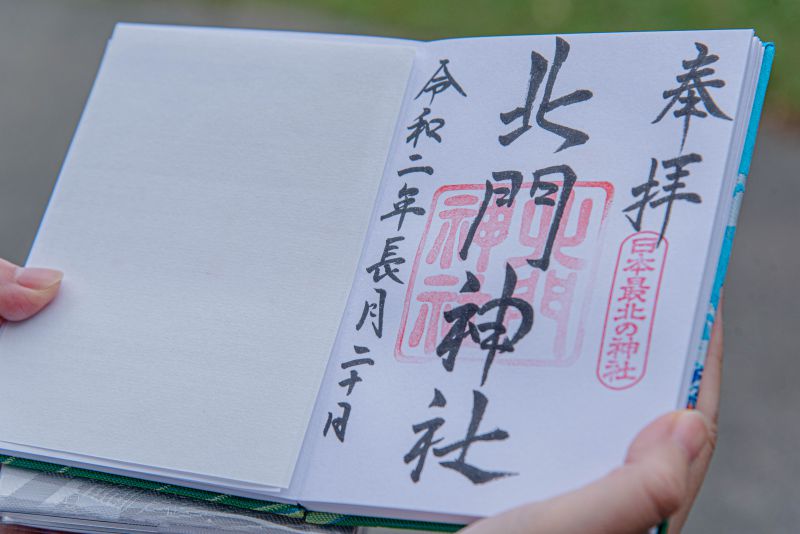 奉拝
日本最北の神社
北門神社
北門神社
令和二年長月二十日